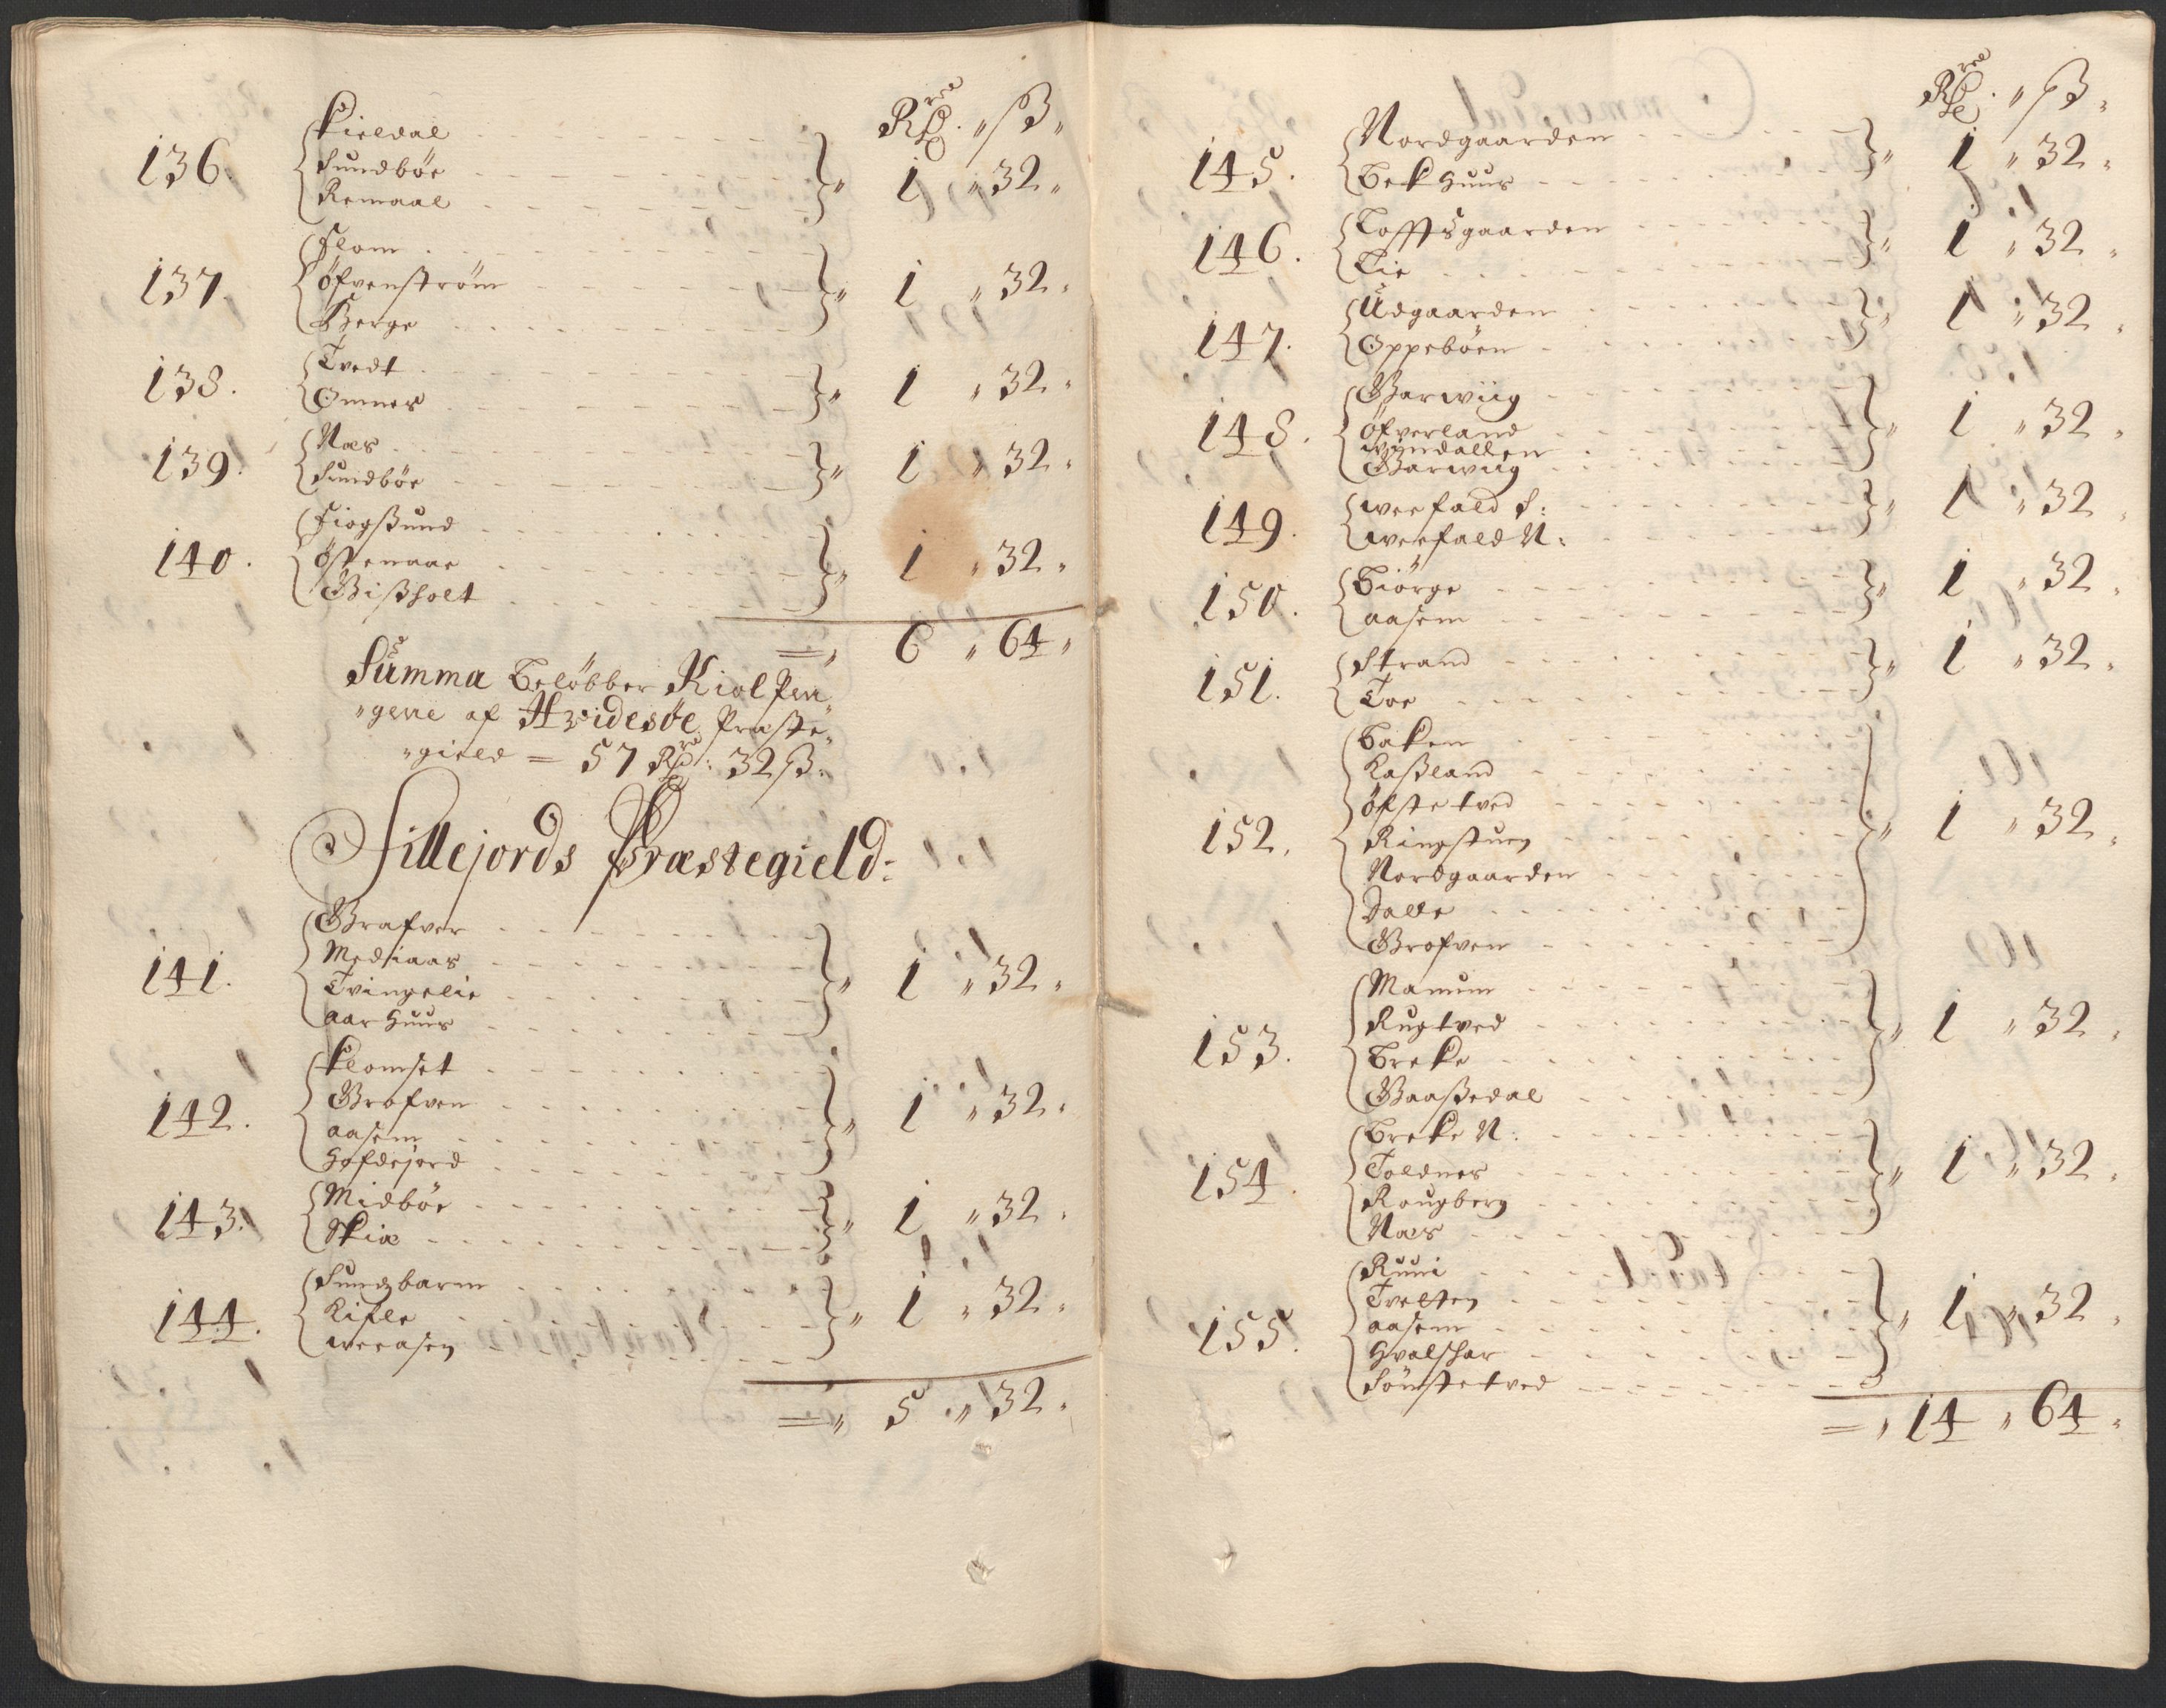 Rdr „ ß„
136. Kieldal
Sundböe
Remaal „ 1 „ 32„
137. Flom
Öfvenström
Berge „ 1 „ 32„
138. Tvedt
Omnes „ 1 „ 32„
139. Næs
Sundböe „ 1 „ 32„
140. Fiogßund
Östenaae
Bißholt „ 1 „ 32„
= „ 6 „ 64„
Summa Belöbber Kiol Pen„
„gene af Hvidesöe Præste„
„gield = 57 Rdr: 32 ß.
Sillejords Præstegield:
141. Grafver
Mediaas
Tvingelie
aarhuus „ 1 „ 32„
142. Klomset
Grofven
aasem
Hofdejord „ 1 „ 32„
143. Midböe
Skiæ „ 1 „ 32„
144. Sundbarm
Kifle
weeasen „ 1 „ 32„
= „ 5 „ 32„
Rdr. „ ß„
145. Nordgaarden
Bekhuus „ 1 „ 32„
146. Tofftsgaarden
Lie „ 1 „ 32„
147. Udgaarden
Oppeböen „ 1 „ 32„
148. Garwiig
Öfverland
windallen
Garwiig „ 1 „ 32„
149. weefald S:
weefald N: „ 1 „ 32„
150. Biörge
aasem „ 1 „ 32„
151. Strand
Toe „ 1 „ 32„
152. Baken
Kaßland
Öfstetved
Ringstuen
Nordgaarden
Dalle
Grofven „ 1 „ 32„
153. Manum
Rugtved
Breke
Baaßedal „ 1 „ 32„
154. Breke N:
Toldnes
Rougberg
Næs „ 1 „ 32„
155. Runi
Tveften
aasem
Hvalshar
Sönstetved „ 1 „ 32„
= „ 14 „ 64„